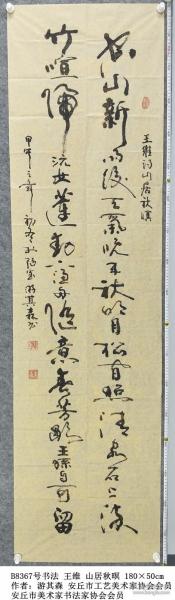 王維詩山居秋暝
空山新雨後天氣晚来秋明月松間照清泉石上流
竹喧歸
浣女蓮動下漁舟随意春芳歇王孫自可留
甲午之年初冬 游其森书
B8367号书法 王维 山居秋暝 180×50cm
作者：游其森 安丘市工艺美术家协会会员
安丘市美术家书法家协会会员